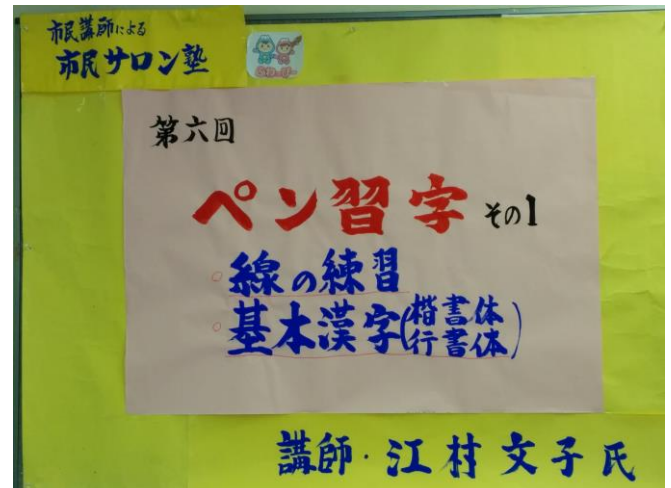 市民講師による
市民サロン塾
第六回
ペン習字 その1
○線の練習
○基本漢字(楷書体 行書体)
講師・江村文子氏